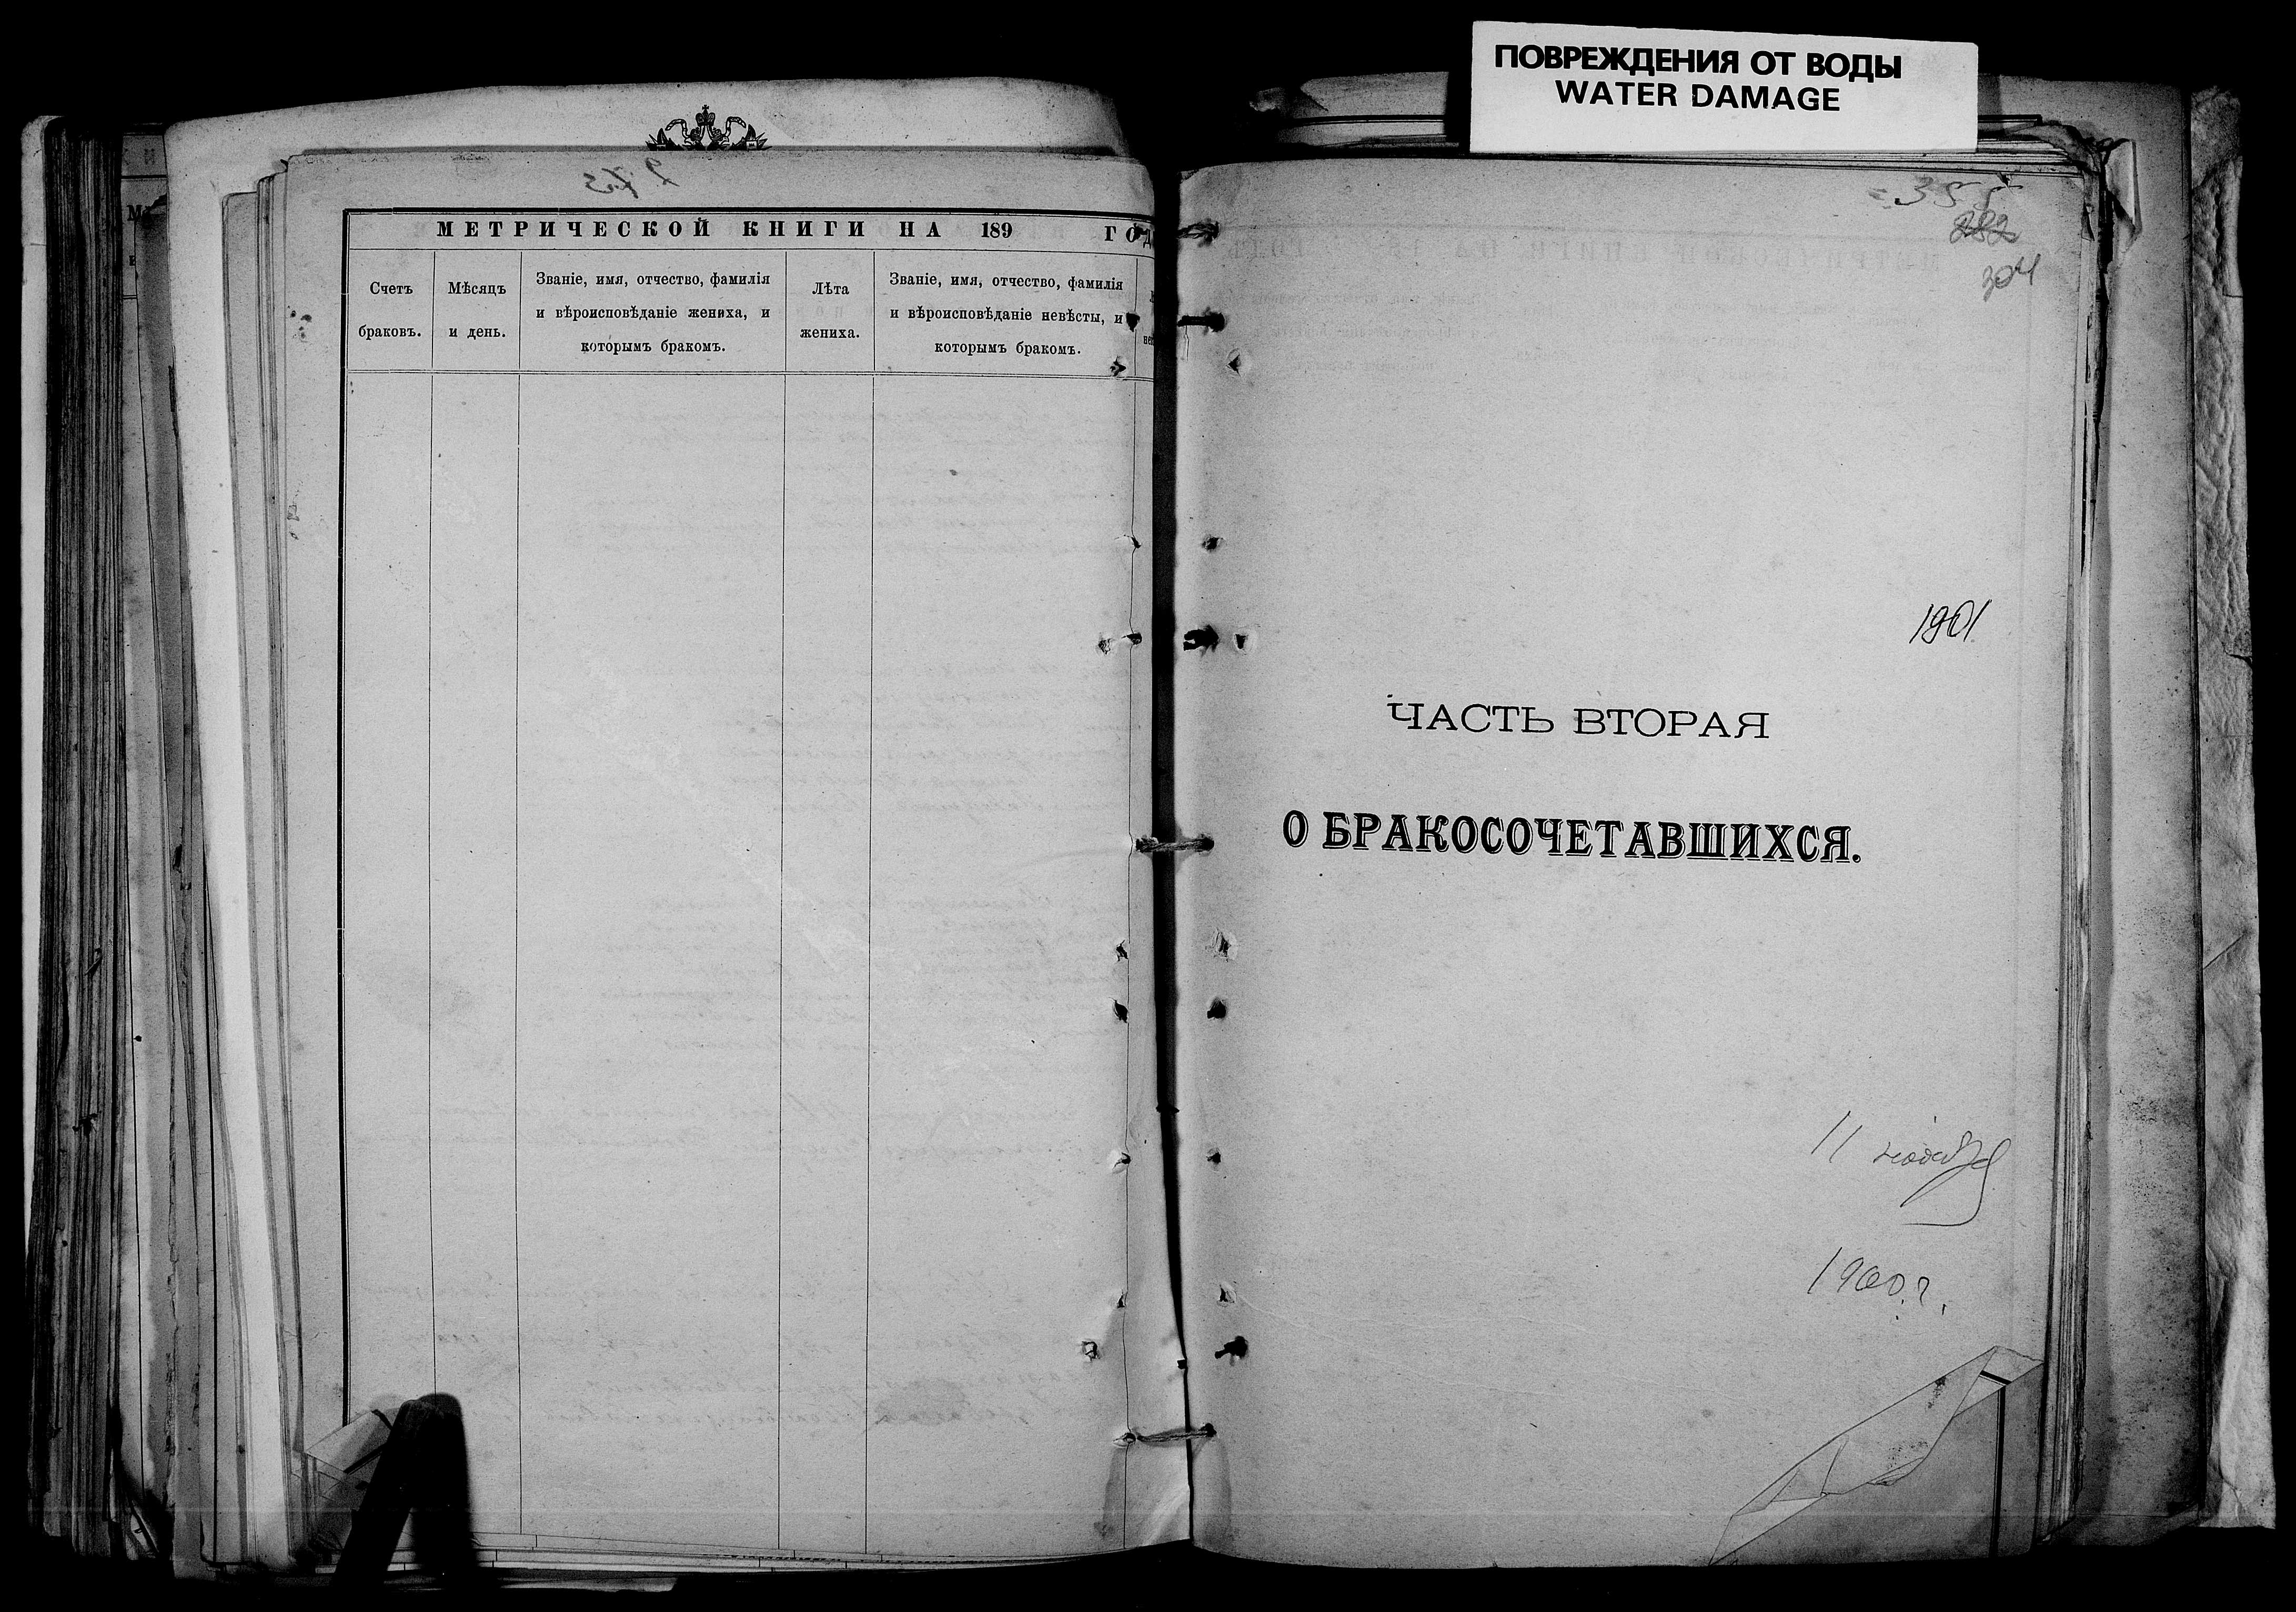 ПОВРЕЖДЕНИЯ ОТ ВОДЫ
WATER DAMAGE
МЕТРИЧЕСКОЙ КНИГИ НА 189 ГОД
Счетъ браковъ.
Мѣсяцъ и день.
Званіе, имя, отчество, фамилія
и вѣроисповѣданіе жениха, и
которымъ бракомъ.
Лѣта жениха.
Званіе, имя, отчество, фамилія
и вѣроисповѣданіе невѣсты, и
которымъ бракомъ.
355
282
304
1901
ЧАСТЬ ВТОРАЯ
О БРАКОСОЧЕТАВШИХСЯ.
11 ноября
1900 г.